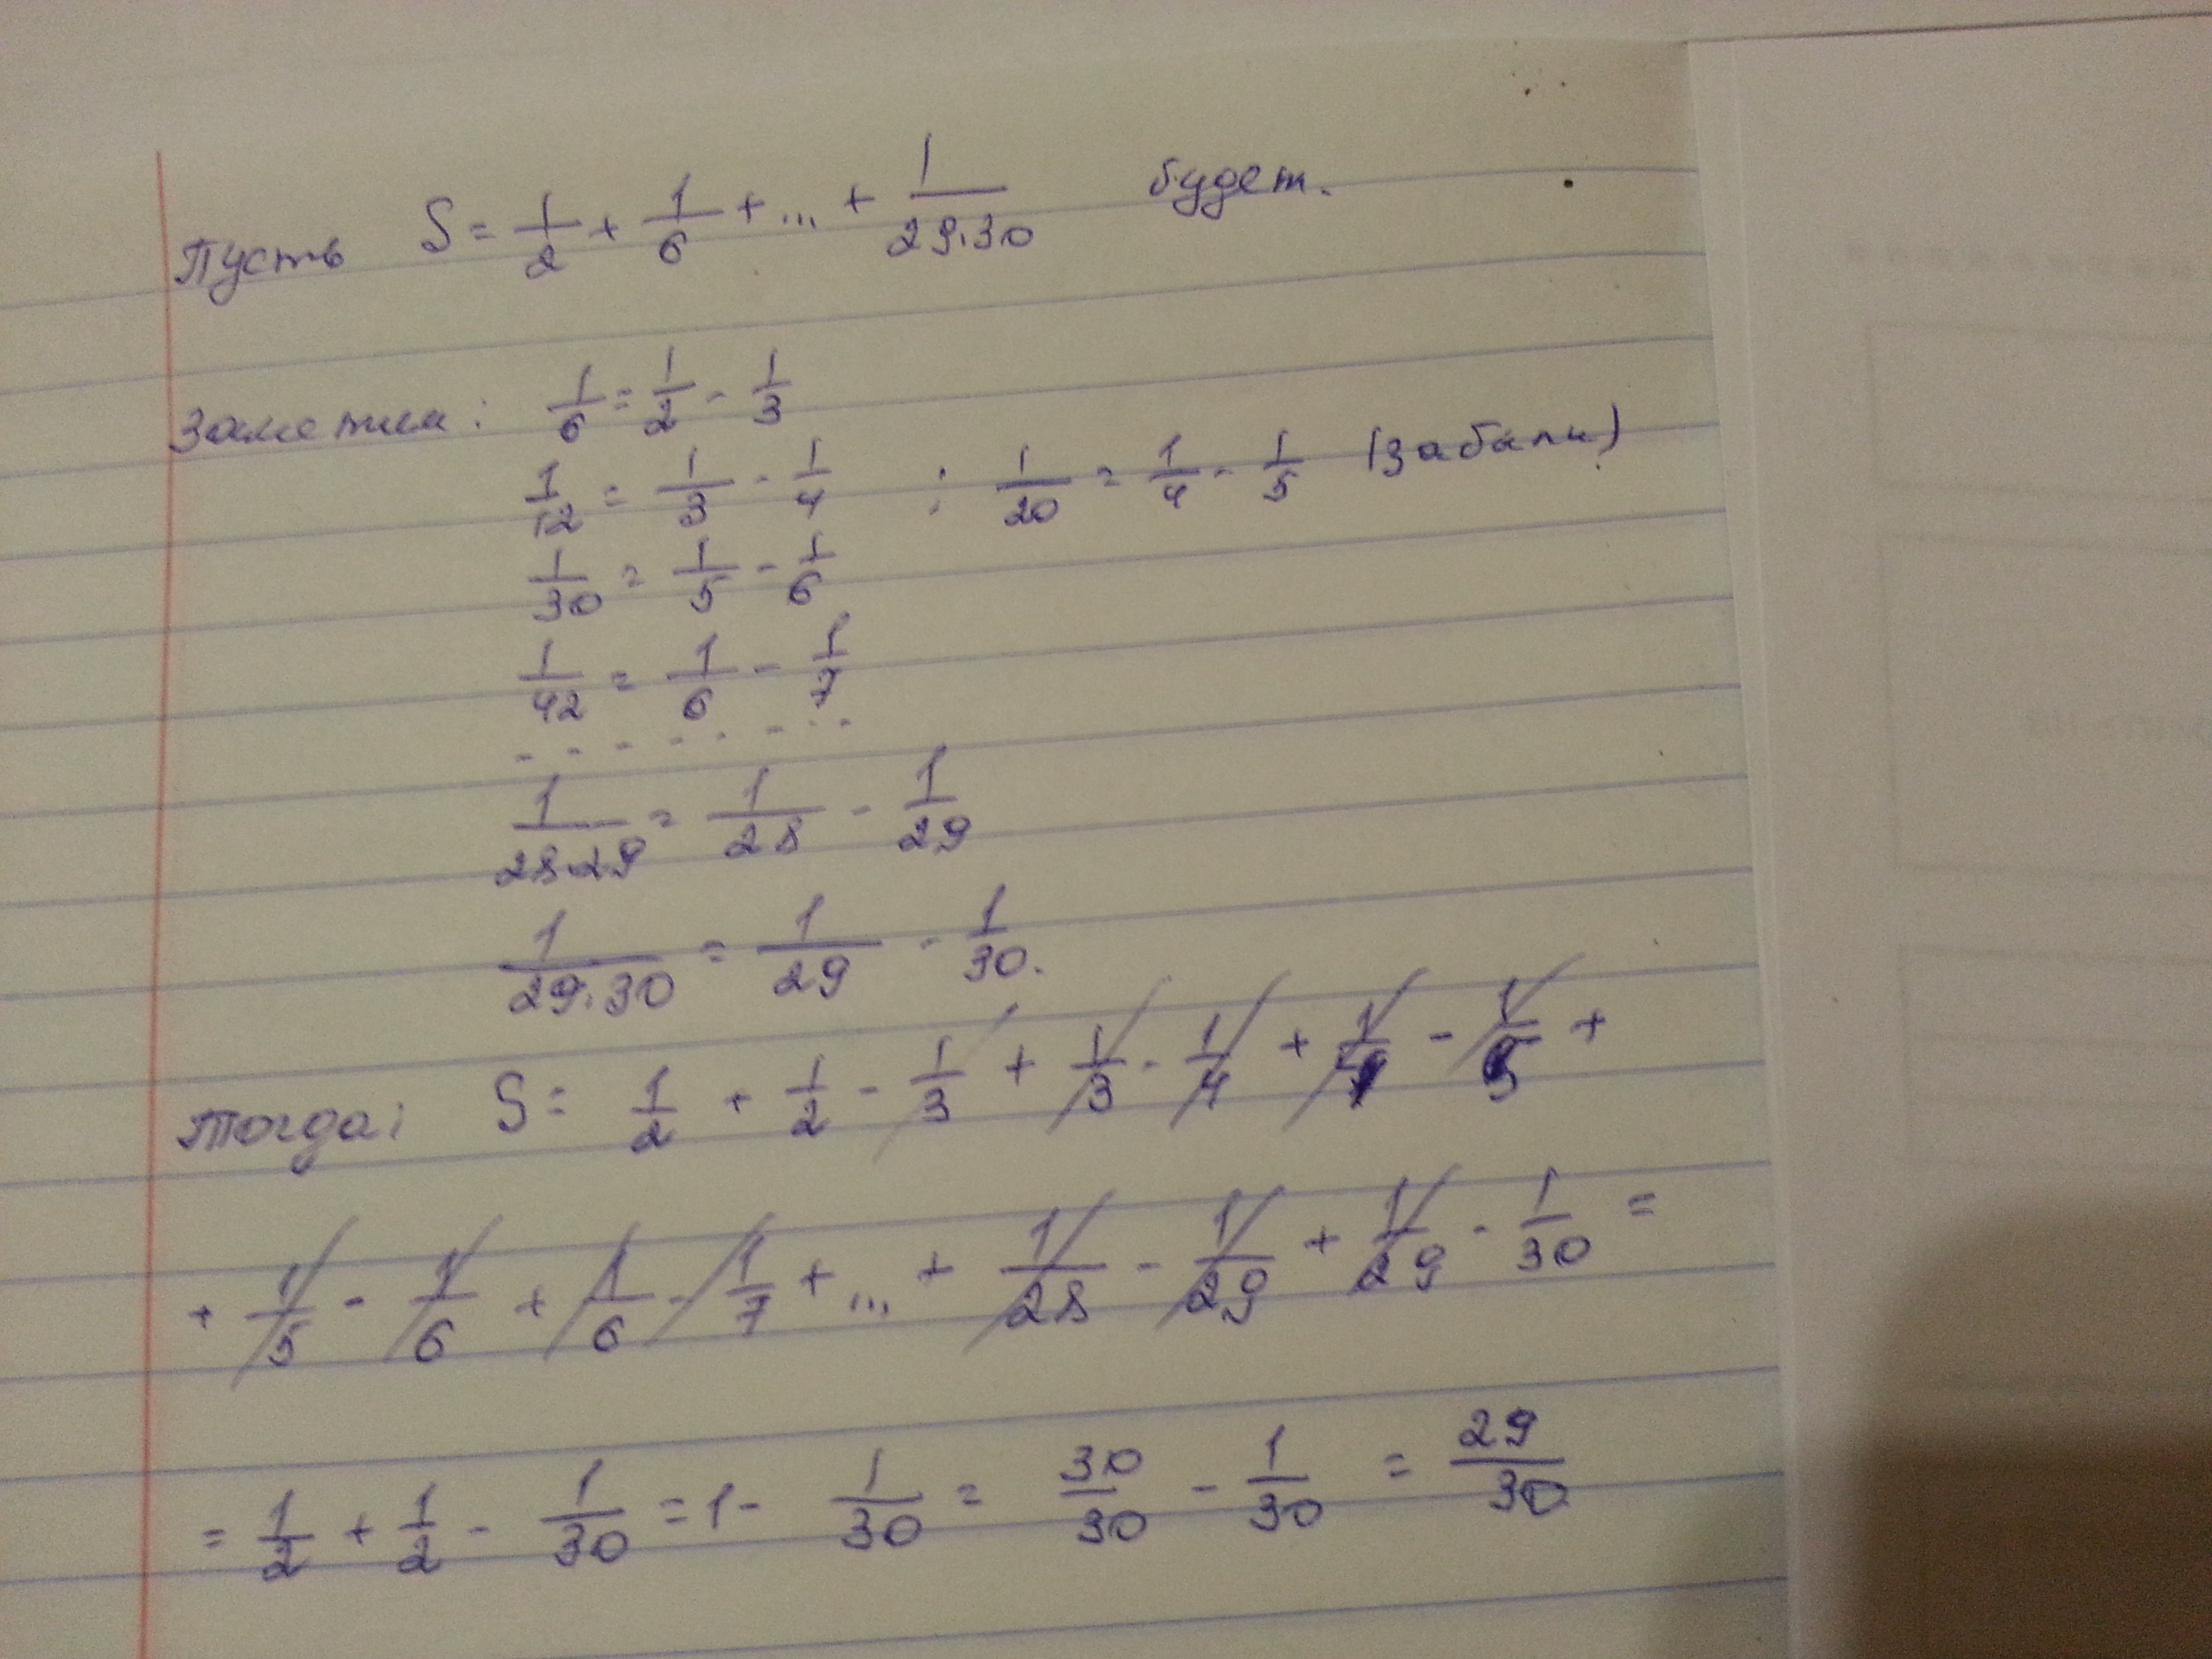 Пусть S = 1/2 + 1/6 + ... + 1/29.30 будет.
Заметим: 1/6 = 1/2 - 1/3
1/12 = 1/3 - 1/4 ; 1/20 = 1/4 - 1/5
1/30 = 1/5 - 1/6
1/42 = 1/6 - 1/7
- - - - - - - -
1/28.29 = 1/28 - 1/29
1/29.30 = 1/29 - 1/30.
Тогда: S = 1/2 + 1/2 - 1/3 + 1/3 - 1/4 + 1/4 - 1/5 +
+ 1/5 - 1/6 + 1/6 - 1/7 + ... + 1/28 - 1/29 + 1/29 - 1/30 =
= 1/2 + 1/2 - 1/30 = 1 - 1/30 = 30/30 - 1/30 = 29/30